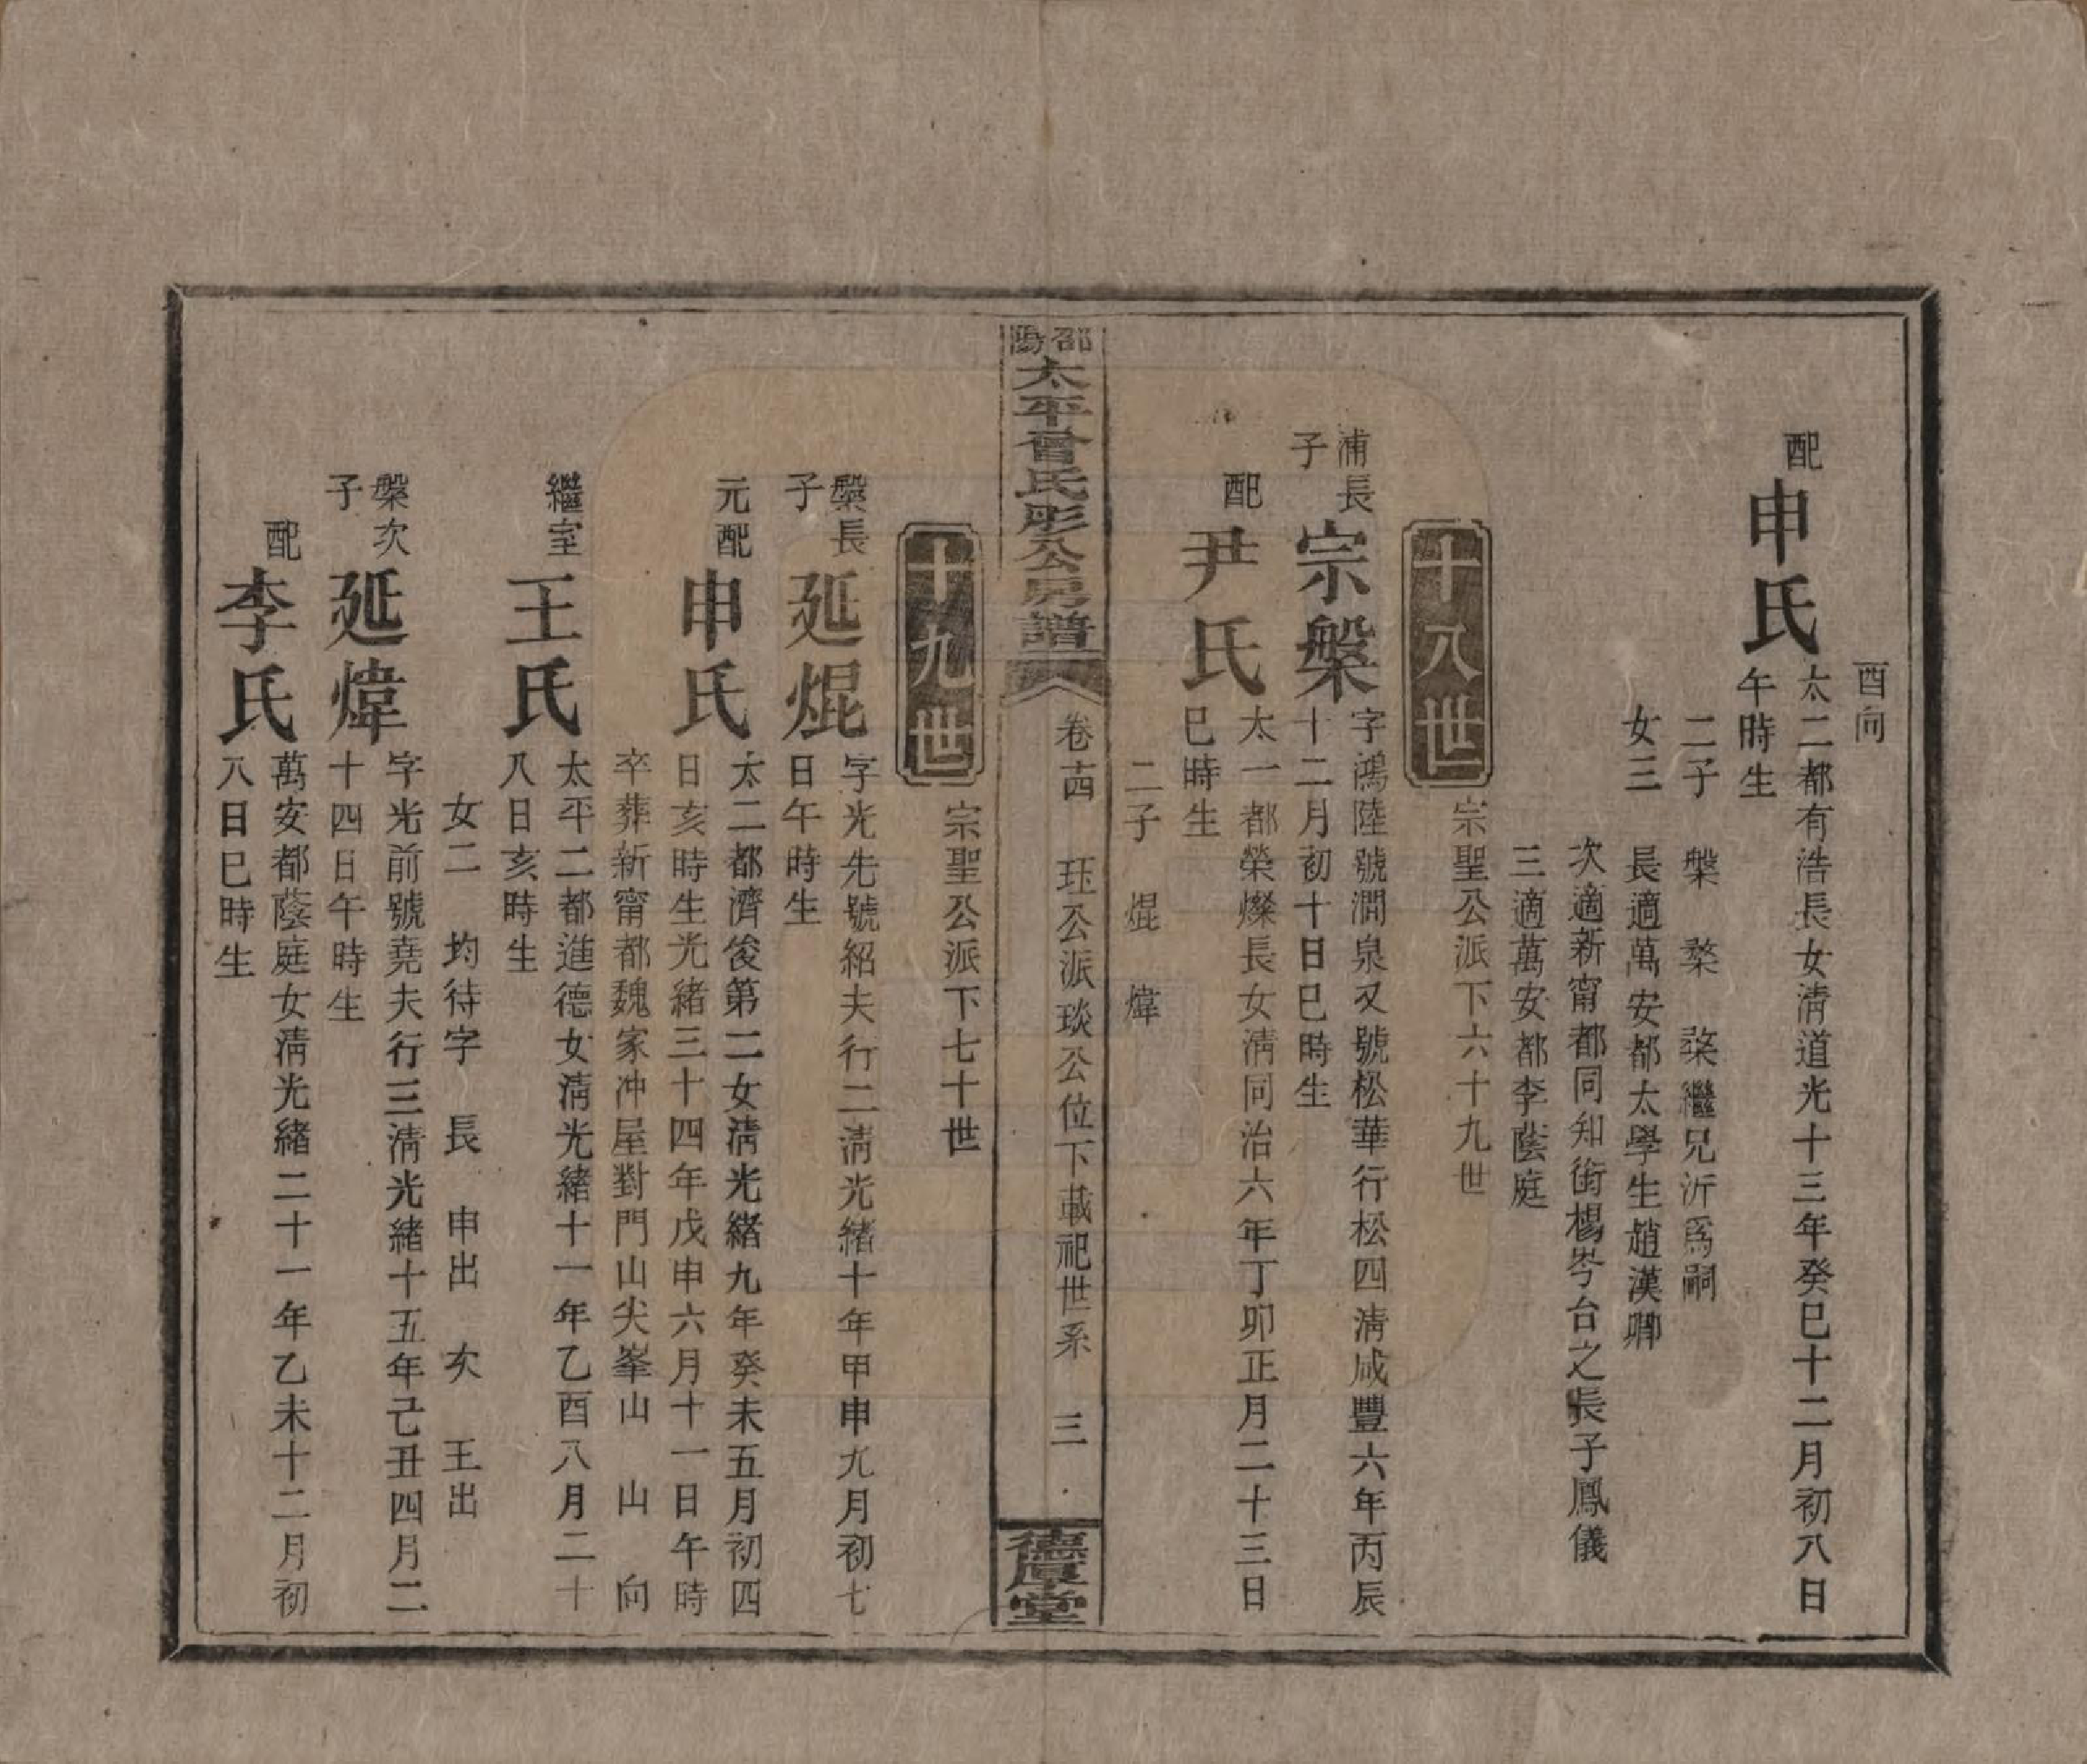 酉向
配
申氏
太二都有浩長女淸道光十三年癸巳十二月初八日
午時生
二子 槃 楘 棨繼兄沂爲嗣
女三 長適萬安都太學生趙漢卿
次適新甯都同知銜楊岑台之長子鳳儀
三適萬安都李蔭庭
十八世
宗聖公派下六十九世
浦長子
宗槃
字鴻陸號澗泉又號松華行松四淸咸豐六年丙辰
十二月初十日巳時生
配
尹氏
太一都榮燦長女淸同治六年丁卯正月二十三日
巳時生
二子 焜 煒
邵陽太平曾氏彤公房譜
卷十四 珏公派琰公位下載祀世系 三
德厚堂
十九世
宗聖公派下七十世
槃長子
延焜
字光先號紹夫行二淸光緒十年甲申九月初七
日午時生
元配
申氏
太二都濟後第二女淸光緒九年癸未五月初四
日亥時生光緒三十四年戊申六月十一日午時
卒葬新甯都魏家冲屋對門山尖峯山 山 向
繼室
王氏
太平二都進德女淸光緒十一年乙酉八月二十
八日亥時生
女二 均待字 長 申出 次 王出
槃次子
延煒
字光前號堯夫行三淸光緒十五年己丑四月二
十四日午時生
配
李氏
萬安都蔭庭女淸光緒二十一年乙未十二月初
八日巳時生